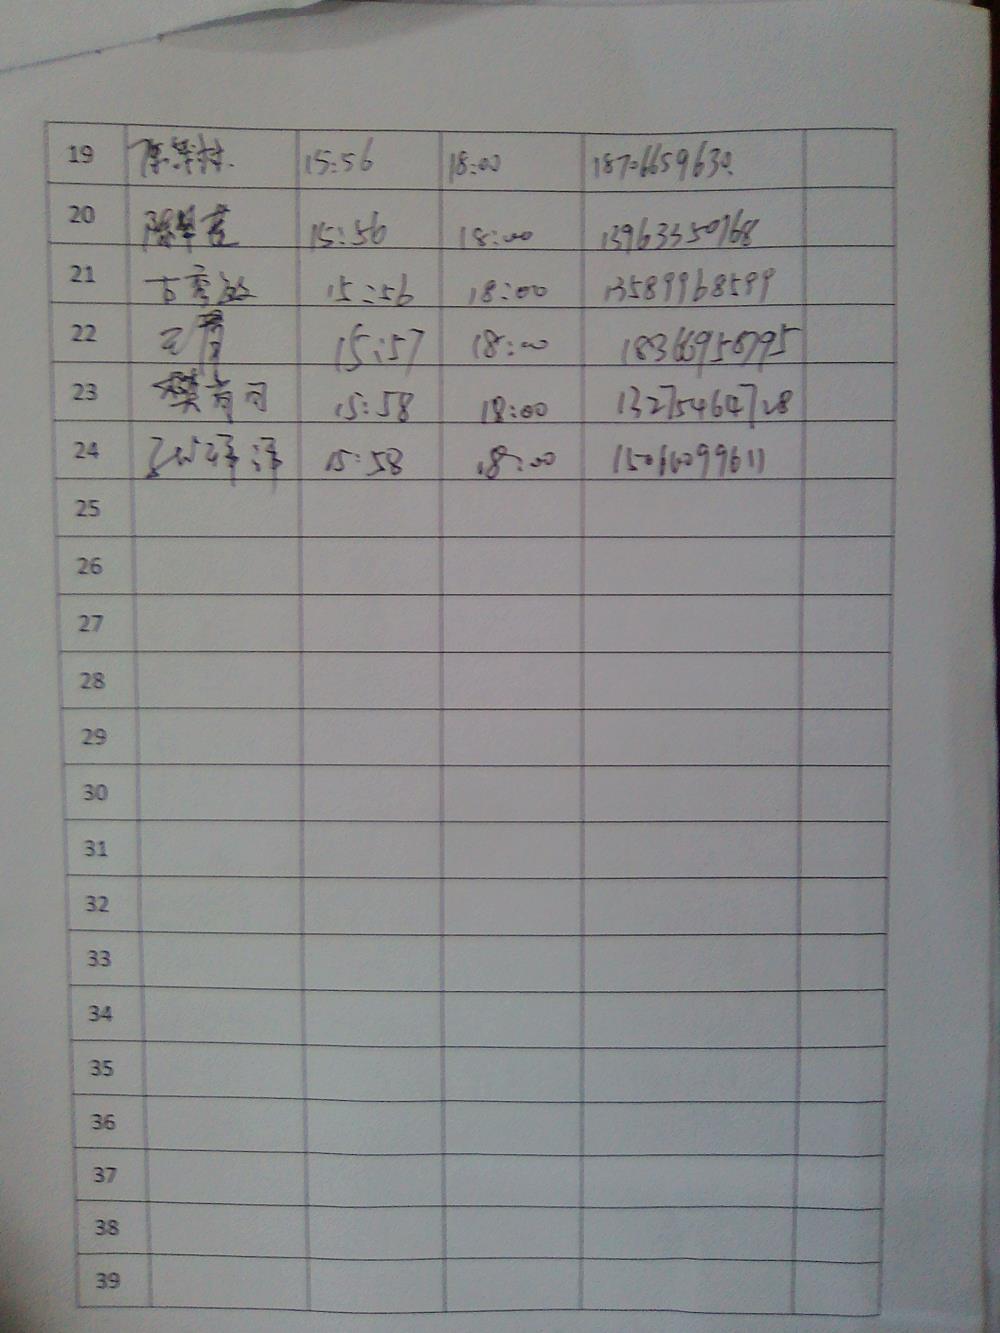 19 15:56 18:00 18706659630
20 15:56 18:00 13963350768
21 古秀敏 15:56 18:00 13589968599
22 王青 15:57 18:00 18366950795
23 樊肖司 15:58 18:00 13275464728
24 15:58 18:00 15066099611
25
26
27
28
29
30
31
32
33
34
35
36
37
38
39